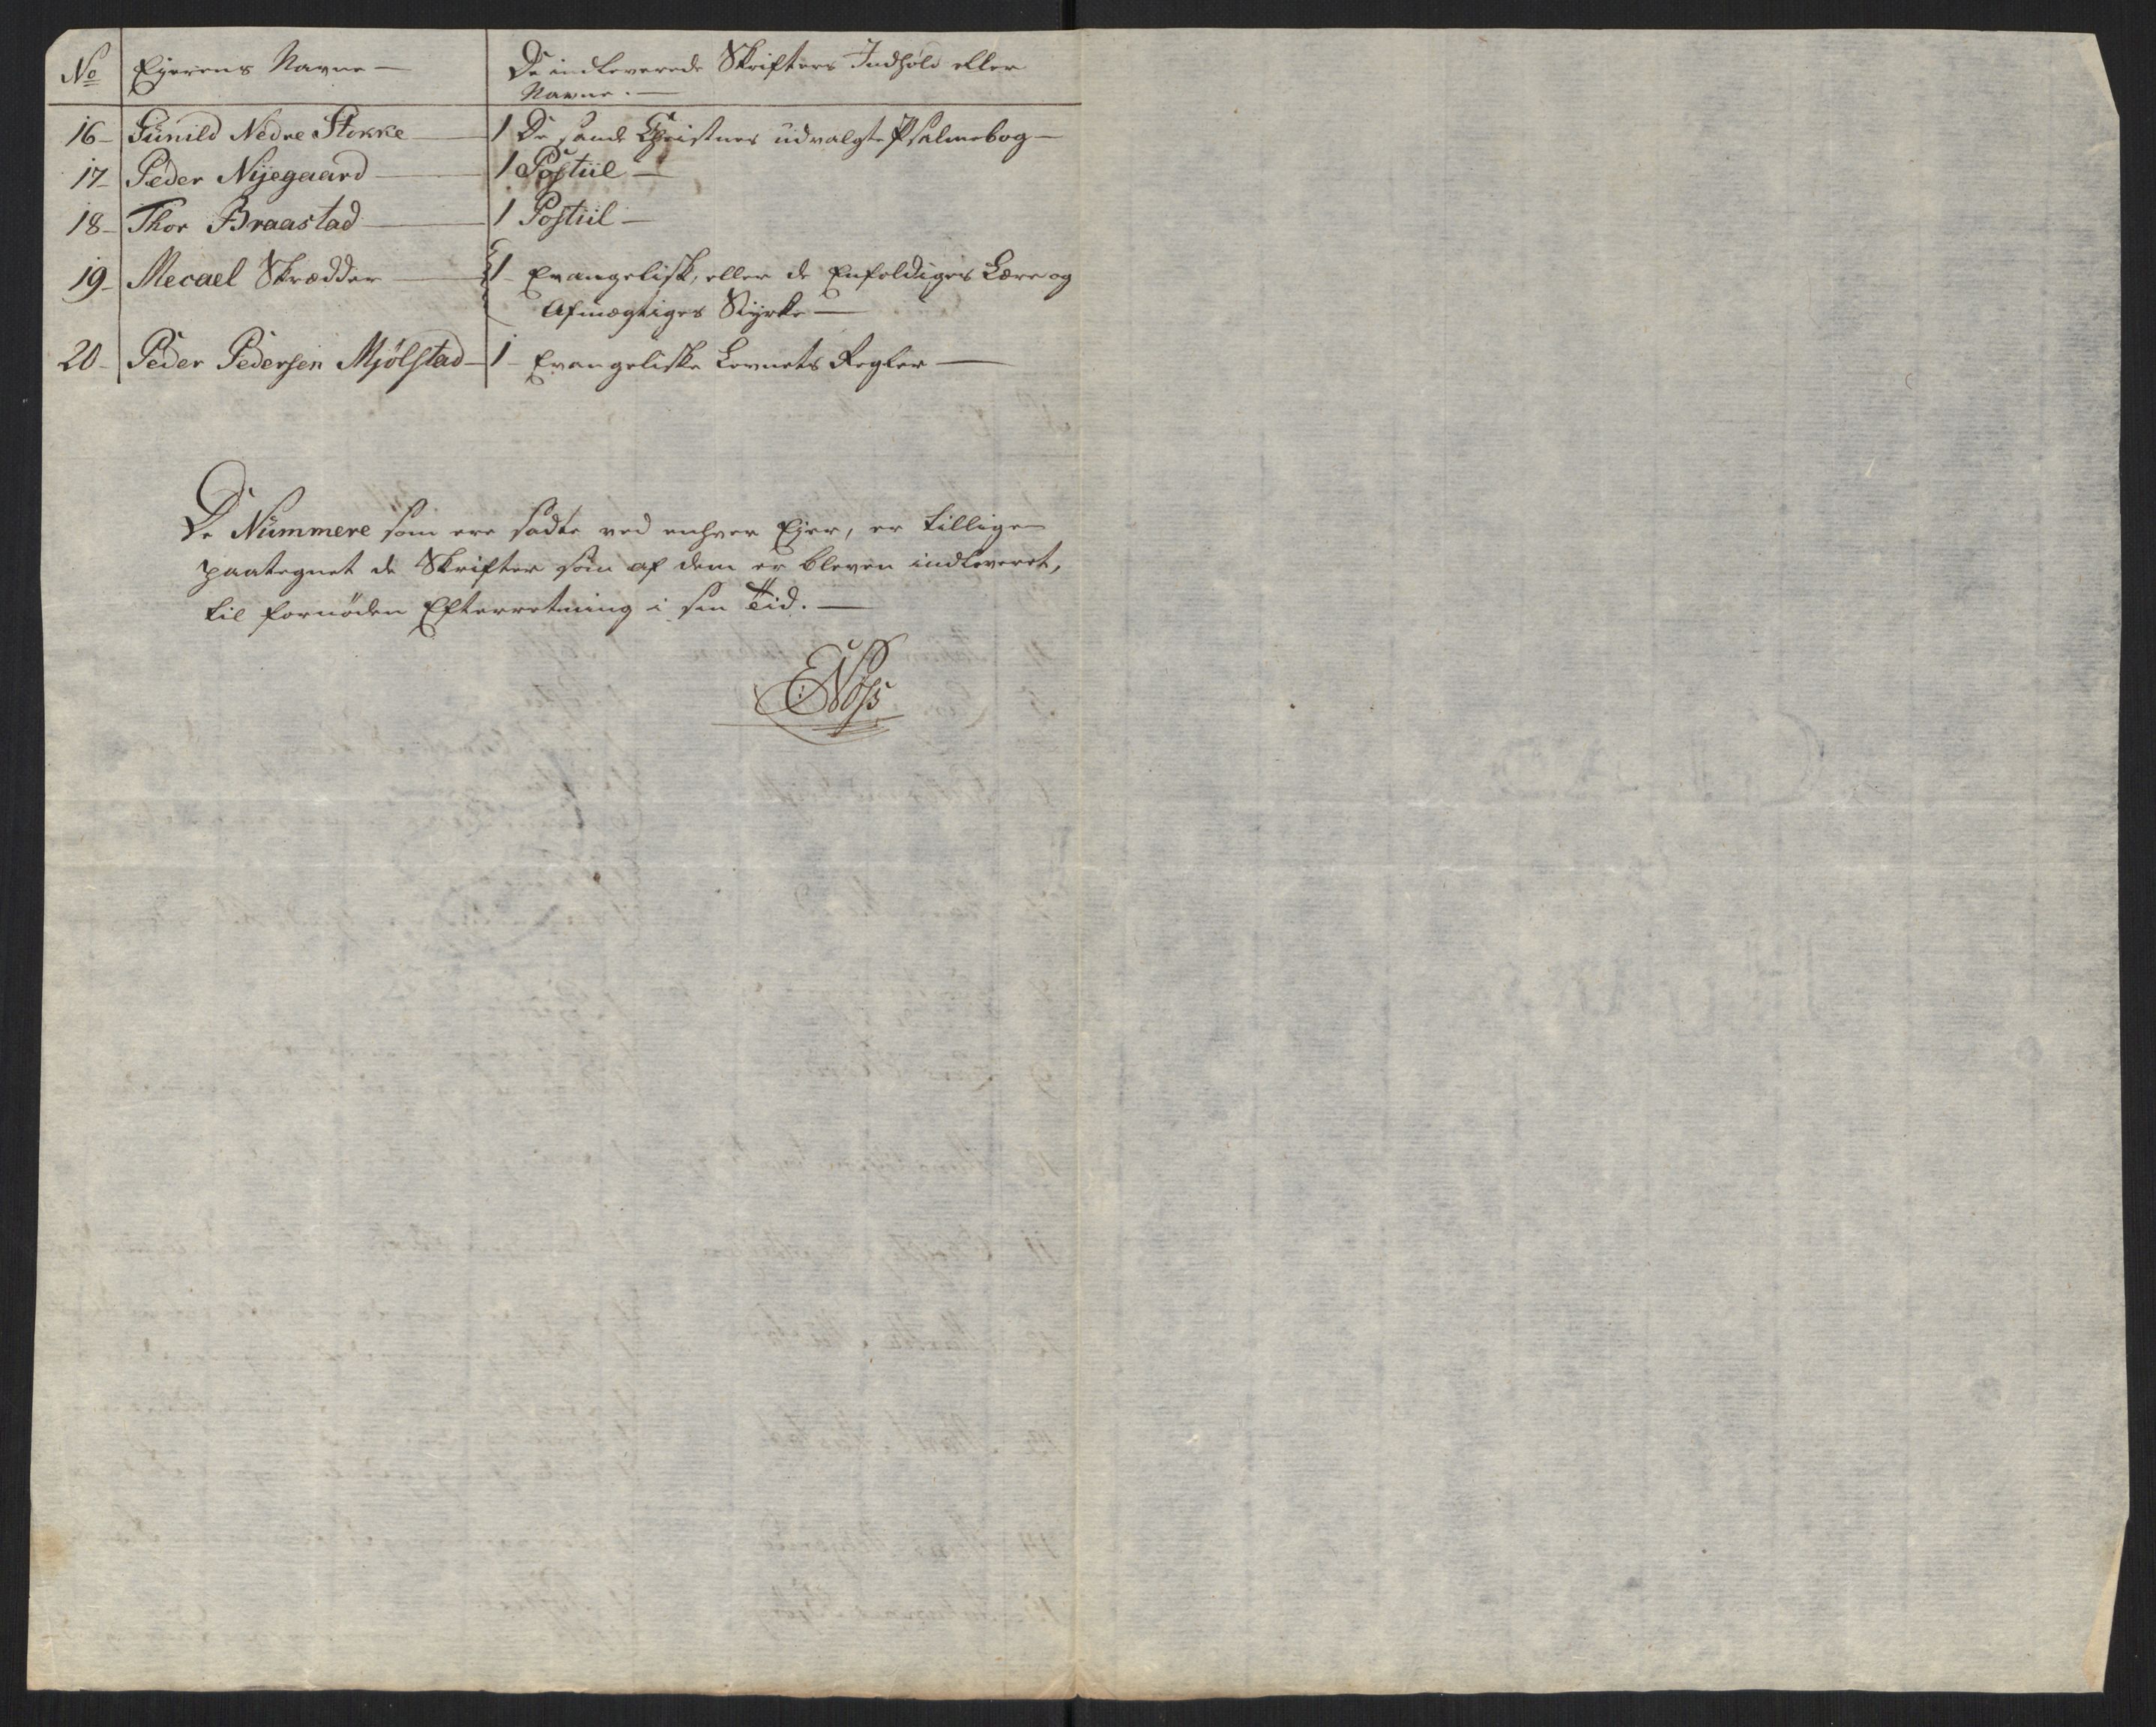 No Ejerens Navne — De indleverede Skrifters Indhold eller
Navne. —
16 – Gunild Nedre Stokke — 1 De sande Christnes udvalgte Psalmebog —
17 – Peder Nijegaard — 1 Postiil —
18 – Thor Braastad — 1 Postiil —
19 – Mecael Skrædder — 1 – Evangelisk, eller de Enfoldiges Lære og
Afmægtiges Styrke —
20 – Peder Pedersen Mjölstad – 1 – Evangeliske Levnets Regler —
De Nummere som ere sadte ved enhver Ejer, er tillige
paategnet de Skrifter som af dem er bleven indleveret,
til fornöden Efterretning i sin Tid. —